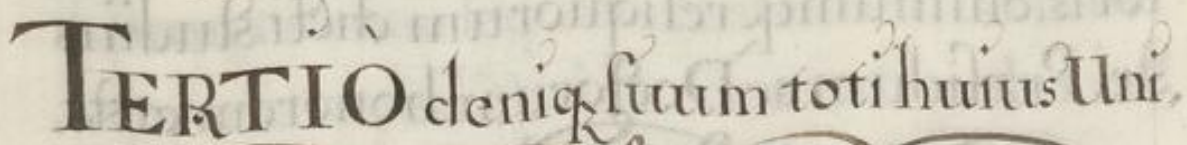 TERTIÒ deniqꝫ suum toti huius Uni,